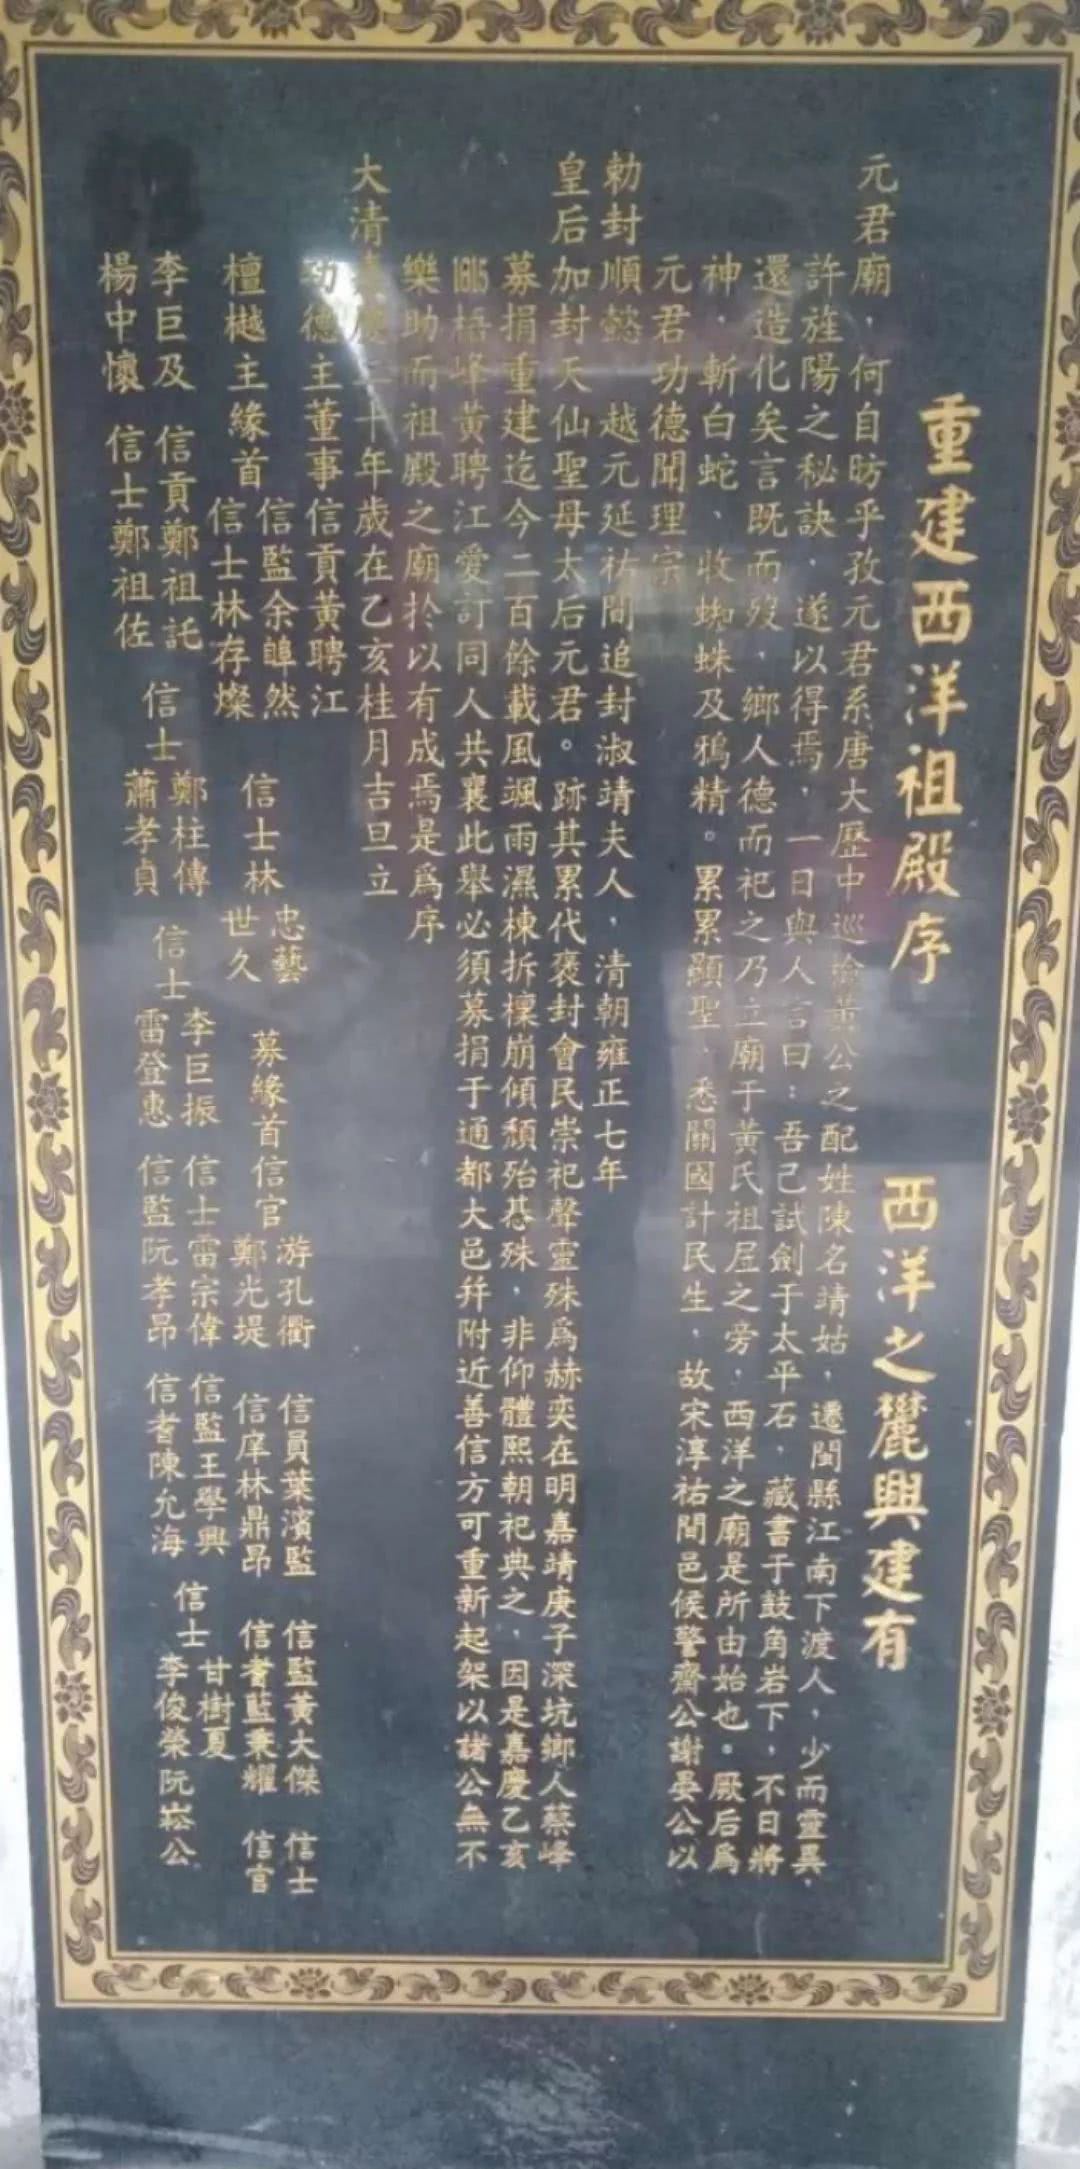 重建西洋祖殿序 西洋之麓興建有
元君廟，何自昉乎孜元君系唐大歷中巡檢黃公之配姓陳名靖姑，遷閩縣江南下渡人，少而靈異，
許旌陽之秘訣，遂以得焉，一日與人言曰：吾已試劍于太平石，藏書于鼓角岩下，不日將
還造化矣言既而歿，鄉人德而祀之乃立廟于黃氏祖厝之旁，西洋之廟是所由始也。厥后爲
神，斬白蛇、收蜘蛛及鴉精。累累顯聖，悉關國計民生，故宋淳祐間邑候警齋公謝晏公以
元君功德聞理宗
勅封順懿 越元延祐間追封淑靖夫人，清朝雍正七年
皇后加封天仙聖母太后元君。跡其累代褒封會民崇祀聲靈殊爲赫奕在明嘉靖庚子深坑鄉人蔡峰
募捐重建迄今二百餘載風颯雨濕棟拆檁崩傾頹殆甚殊，非仰體熙朝祀典之，因是嘉慶乙亥
1815梧峰黃聘江愛訂同人共襄此舉必須募捐于通都大邑幷附近善信方可重新起架以諸公無不
樂助而祖殿之廟於以有成焉是爲序
大清嘉慶二十年歲在乙亥桂月吉旦立
功德主董事信貢黃聘江
檀樾主緣首 信監余然 信士林存燦 信士林 忠藝 世久 募緣首信官 游孔衢 鄭光堤 信員葉濱監 信庠林鼎昂 信監黃大傑 信耆藍秉耀 信士 信官
李巨及 楊中懷 信貢鄭祖託 信士鄭祖佐 信士 鄭柱傳 蕭孝貞 信士 李巨振 雷登惠 信士雷宗偉 信監阮孝昂 信監王學興 信耆陳允海 信士 甘樹夏 李俊榮阮崧公